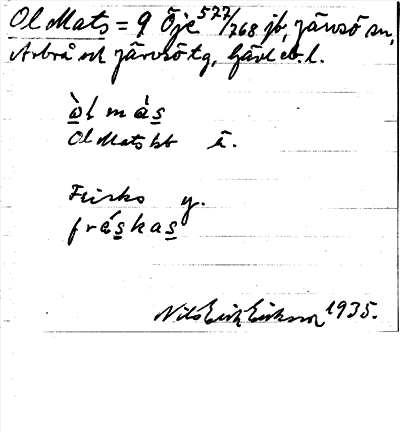 Ol Mats = 9 Öje 577/768 jb, Järvsö sn,
Arbrå och Järvsö tg, Gävleb. l.
òl màs
Ol Mats bb ä.
Frisko y.
fráskas
Nils Erik Eriksson 1935.